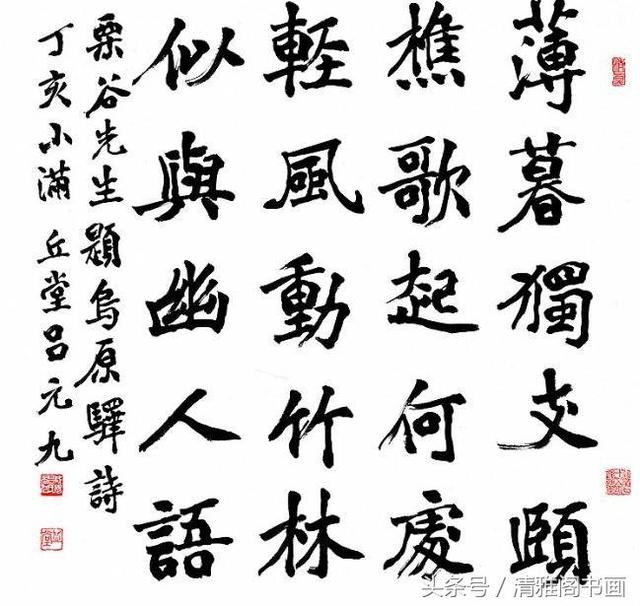 薄暮獨支頤
樵歌起何處
輕風動竹林
似與幽人語
栗谷先生題烏原驛詩
丁亥小滿 丘堂呂元九
头条号/清雅阁书画